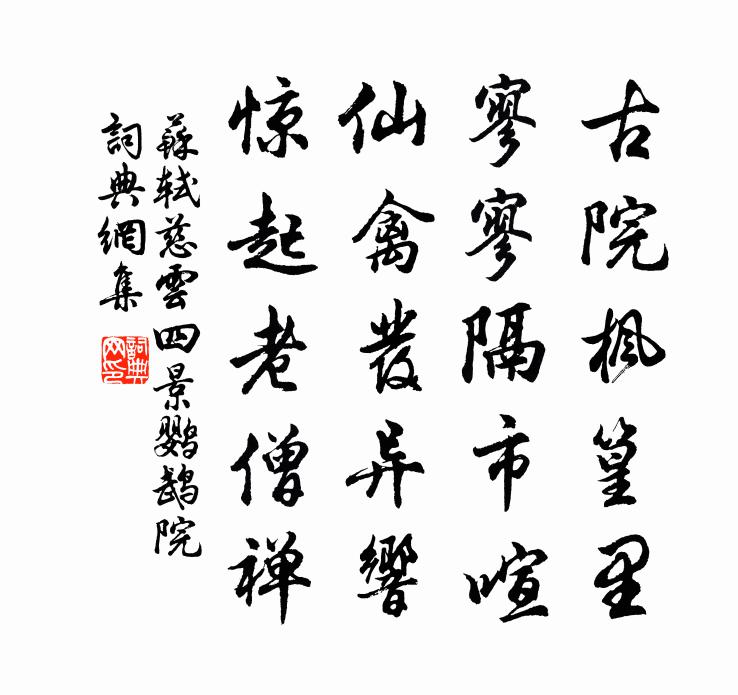 古院枫篁里
寥寥隔市喧
仙禽發异響
惊起老僧禅
蘇轼慈雲四景鹦鹉院
詞典網集
詞典网印